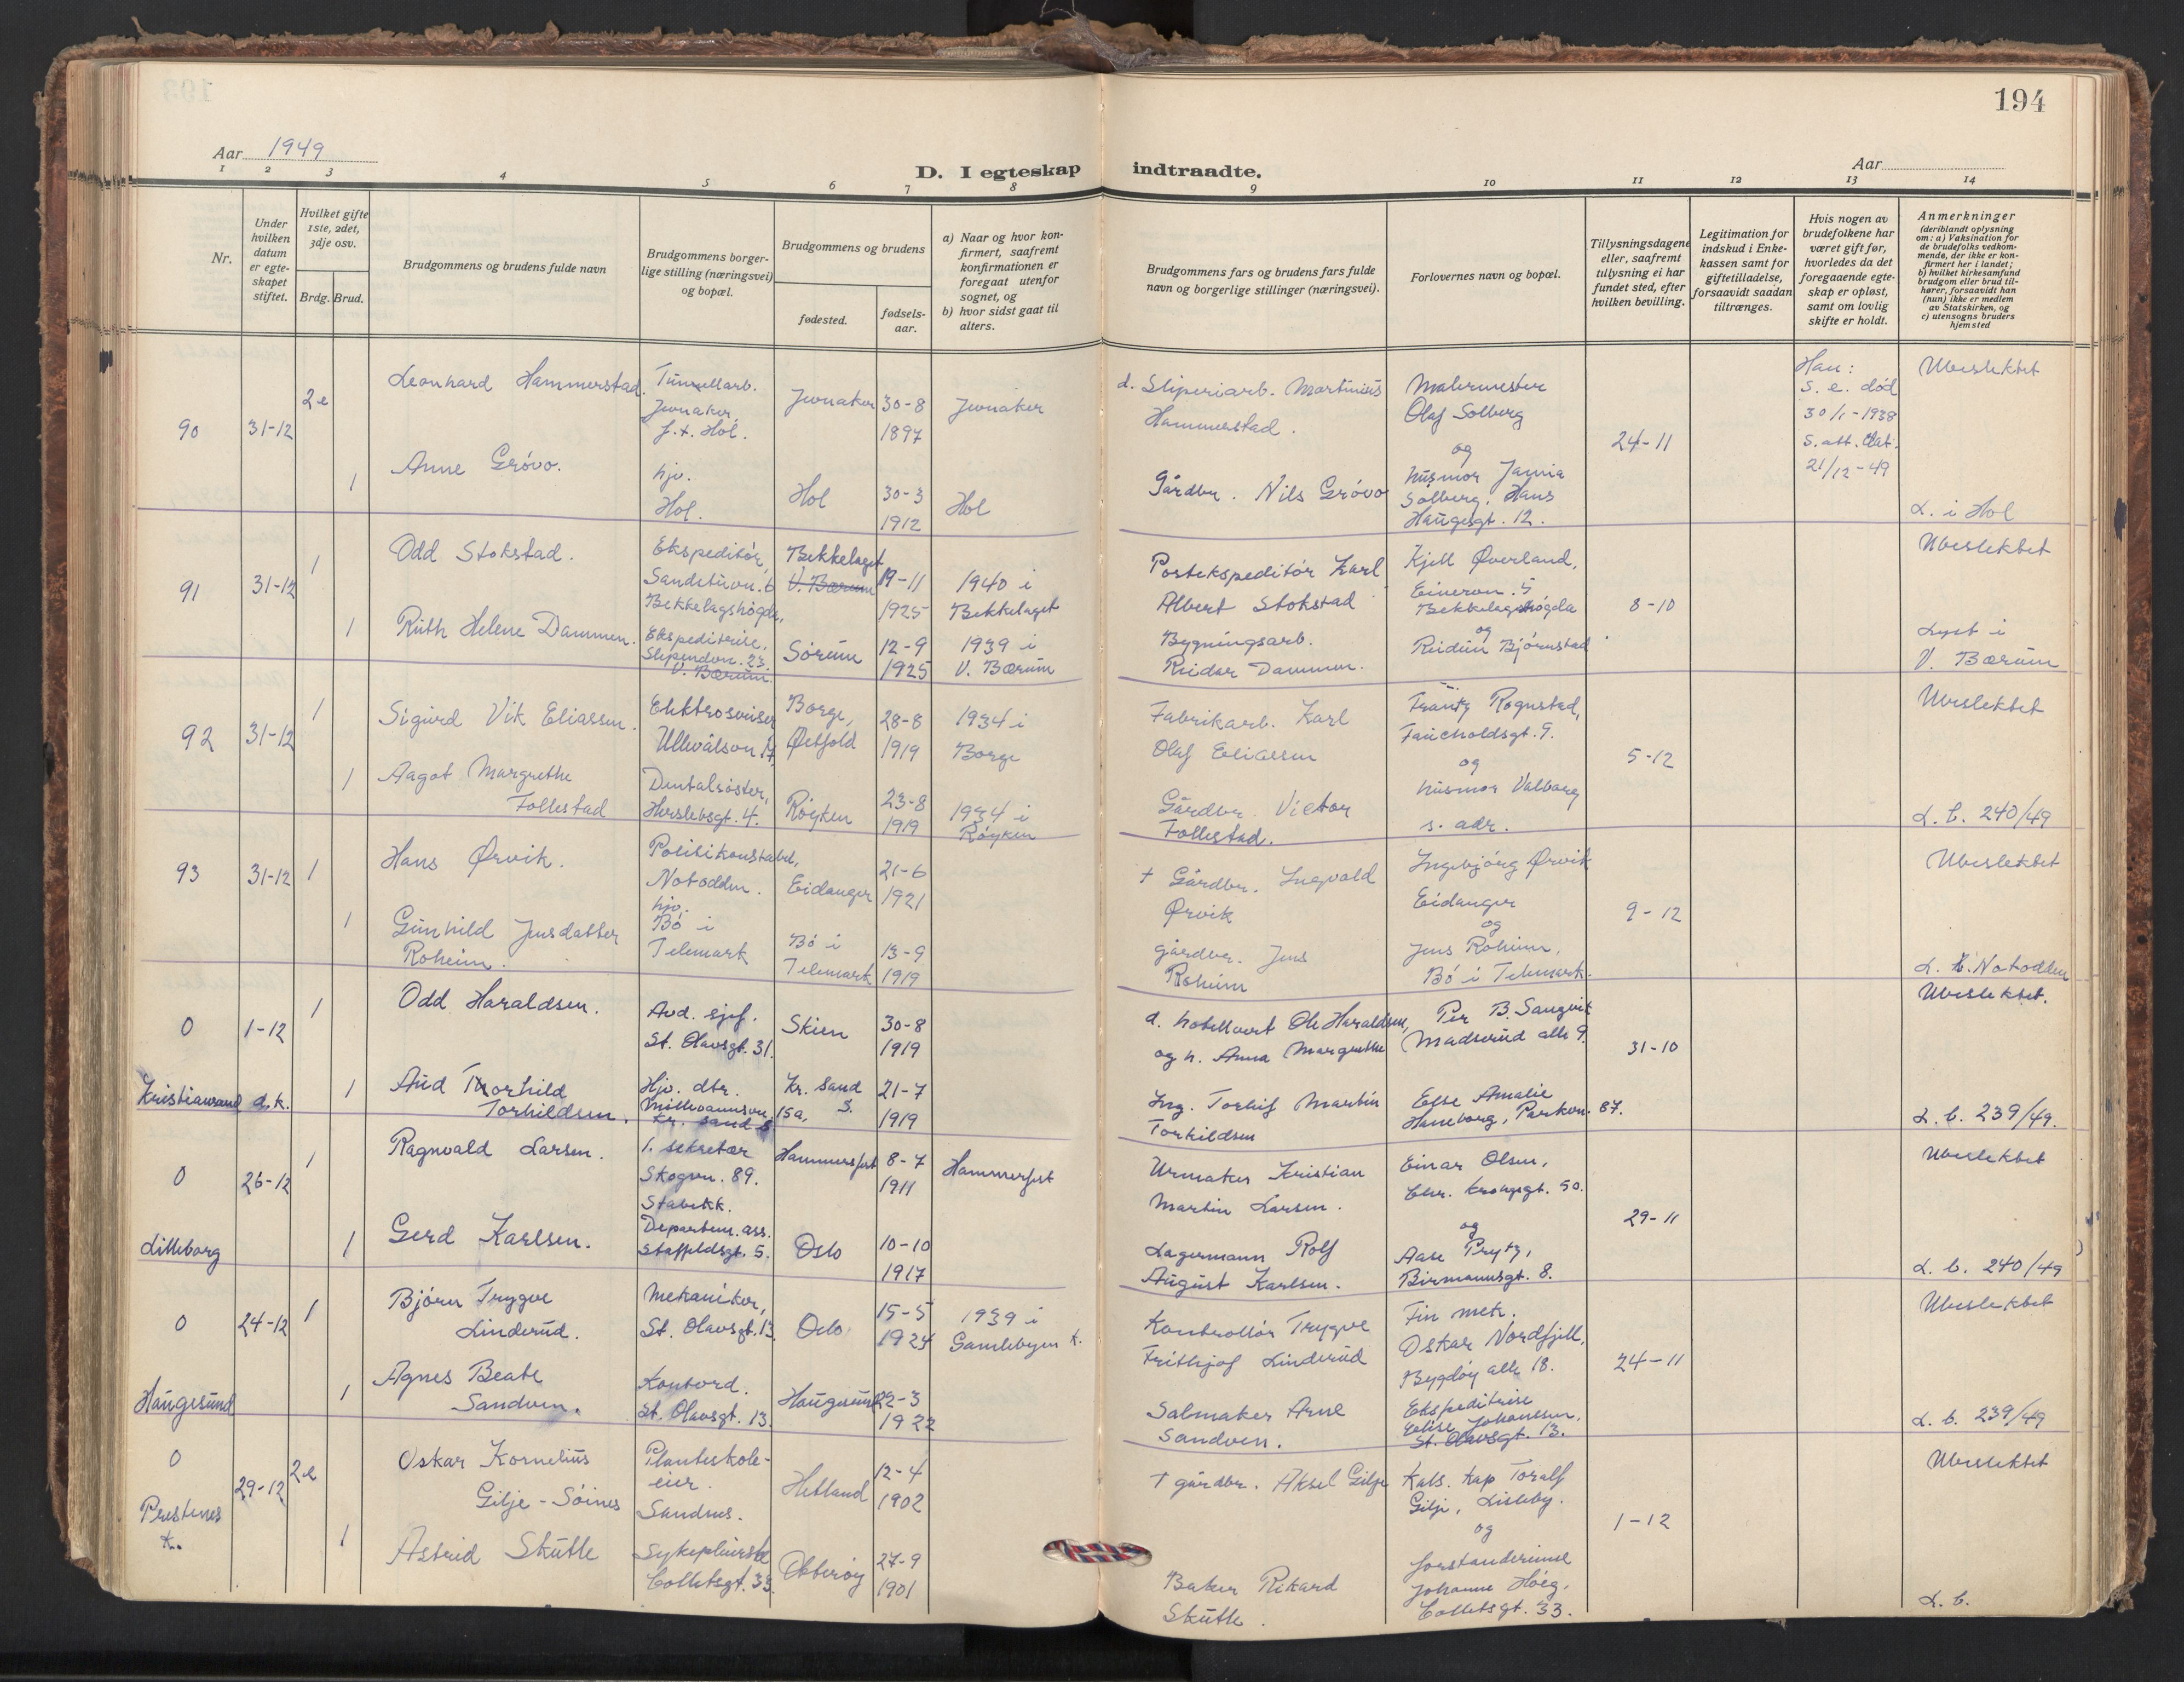 194
Aar 1949
D. I egteskap indtraadte.
Aar
1 2 3 4 5 6 7 8 9 10 11 12 13 14
Nr.
Under hvilken datum er egteskapet stiftet.
Hvilket gifte 1ste, 2det, 3dje osv.
Brdg. Brud.
Brudgommens og brudens fulde navn
Brudgommens borgerlige stilling (næringsvei) og bopæl.
Brudgommens og brudens
fødested.
fødselsaar.
a) Naar og hvor konfirmert, saafremt konfirmationen er foregaat utenfor sognet, og
b) hvor sidst gaat til alters.
Brudgommens fars og brudens fars fulde navn og borgerlige stillinger (næringsvei).
Forlovernes navn og bopæl.
Tillysningsdagene eller, saafremt tillysning ei har fundet sted, efter hvilken bevilling.
Legitimation for indskud i Enkekassen samt for giftetilladelse, forsaavidt saadan tiltrænges.
Hvis nogen av brudefolkene har været gift før, hvorledes da det foregaaende egteskap er opløst, samt om lovlig skifte er holdt.
Anmerkninger
(deriblandt oplysning om: a) Vaksination for de brudefolks vedkommende, der ikke er konfirmert her i landet; b) hvilket kirkesamfund brudgom eller brud tilhører, forsaavidt han (hun) ikke er medlem av Statskirken, og c) utensogns bruders hjemsted
90 31-12 2e Leonhard Hammerstad. Tunnellarb. Jevnaker, f.t. Hol. Jevnaker 30-8 1897 Jevnaker
d. Sliperiarb. Martinius Hammerstad. Malermester Olaf Solberg og 24-11 Han: s. e. død 30/1-1938 s. att. dat. 21/12-49 Ubeslektet
1 Anne Grøvo. hjv. Hol. Hol 30-3 1912 Hol
Gårdbr. Nils Grøvo husmor Solberg, Hans Haugesgt. 12. L. i Hol
91 31-12 1 Odd Stokstad. Ekspeditør, Sandstuvn. 6 Bekkelagshøgda, Bekkelaget V. Bærum 19-11 1925 1940 i Bekkelaget
Postekspeditør Karl Albert Stokstad Kjell Øverland, Einervn. 5 Bekkelagshøgda og 8-10 Ubeslektet
1 Ruth Helene Dammen. Ekspeditrise, Slependvn. 23. V. Bærum. Sørum 12-9 1925 1939 i V. Bærum
Bygningsarb. Reidar Dammen. Reidun Bjørnstad Lyst i V. Bærum
92 31-12 1 Sigurd Vik Eliassen. Elektrosveiser Ullevålsvn. 17, Borge, Østfold 28-8 1919 1934 i Borge
Fabrikarb. Karl Olaf Eliassen Frantz Rognstad, Fauchaldsgt. 9. og 5-12 Ubeslektet
1 Aagot Margrethe Follestad Dentalsøster, Herslebsgt. 4. Røyken 23-8 1919 1934 i Røyken
Gårdbr. Victor Follestad. husmor Valborg s. adr. L. b. 240/49
93 31-12 1 Hans Ørvik. Politikonstabel, Notodden. Eidanger 21-6 1921
+ Gårdbr. Ingvald Ørvik Ingebjørg Ørvik Eidanger og 9-12 Ubeslektet
1 Gunhild Jensdatter Roheim. hjv. Bø i Telemark Bø i Telemark 13-9 1919
gårdbr. Jens Roheim Jens Roheim, Bø i Telemark. L. b. Notodden
0 1-12 1 Odd Haraldsen. Avd. sjef. St. Olavsgt. 31. Skien 30-8 1919
d. hotellvert Ole Haraldsen, og h. Anna Margrethe Per B. Sangvik Madserud alle 9. 31-10 Ubeslektet.
Kristiansand d.k. 1 Aud Thorhild Torkildsen. Hjv. dtr. 15a, Kr. sand S Kr. sand S. 21-7 1919
Ing. Torleif Martin Torkildsen Else Amalie Haneborg, Parkvn. 87. L. b. 239/49.
0 26-12 1 Ragnvald Larsen. 1. sekretær Skogvn. 89. Stabekk. Hammerfest 8-7 1911 Hammerfest
Urmaker Kristian Martin Larsen. Einar Olsen, Chr. Krohgsgt. 50. og 29-11 Ubeslektet
Lilleborg 1 Gerd Karlsen. Departem. ass. Staffeldsgt. 5. Oslo 10-10 1917
Lagermann Rolf August Karlsen. Aase Prytz, Birmannsgt. 8. L. b. 240/49
0 24-12 1 Bjørn Trygve Linderud. Mekaniker, St. Olavsgt. 13. Oslo 15-5 1924 1939 i Gamlebyen k.
Kontrollør Trygve Frithjof Linderud Fin mek. Oskar Nordfjell, Bygdøy alle 18. 24-11 Ubeslektet
Haugesund 1 Agnes Beate Sandven. Kontord. St. Olavsgt. 13. Haugesund 22-3 1922
Salmaker Arne Sandven. Ekspeditrise Johanssen, St. Olavsgt. 13. L. b. 239/49
0 Prestenes k. 29-12 2e Oskar Kornelius Gilje-Søines Planteskoleeier. Sandnes. Hetland 12-4 1902
+ gårdbr. Aksel Gilje Kabs. kap Toralf Gilje, Lisleby. og 1-12 Ubeslektet
1 Astrid Skutle Sykepleierske Colletsgt. 33. Osterøy 27-9 1901
Baker Rikard Skutle. forstanderinne Johanne Høeg, Colletsgt. 33. L. b.